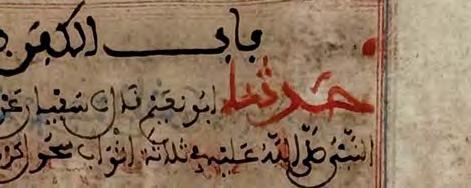 باب الكفن
حدثنا ابو نعيم قال سفيان عن
النبي صلى الله عليه في ثلاثة اثواب سحول